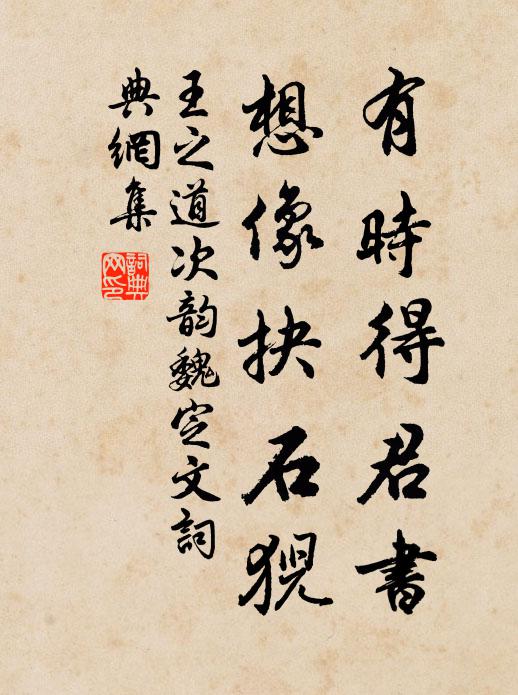 有時得君書
想像抉石猊
王之道次韵魏定文詞
典網集
詞典网印